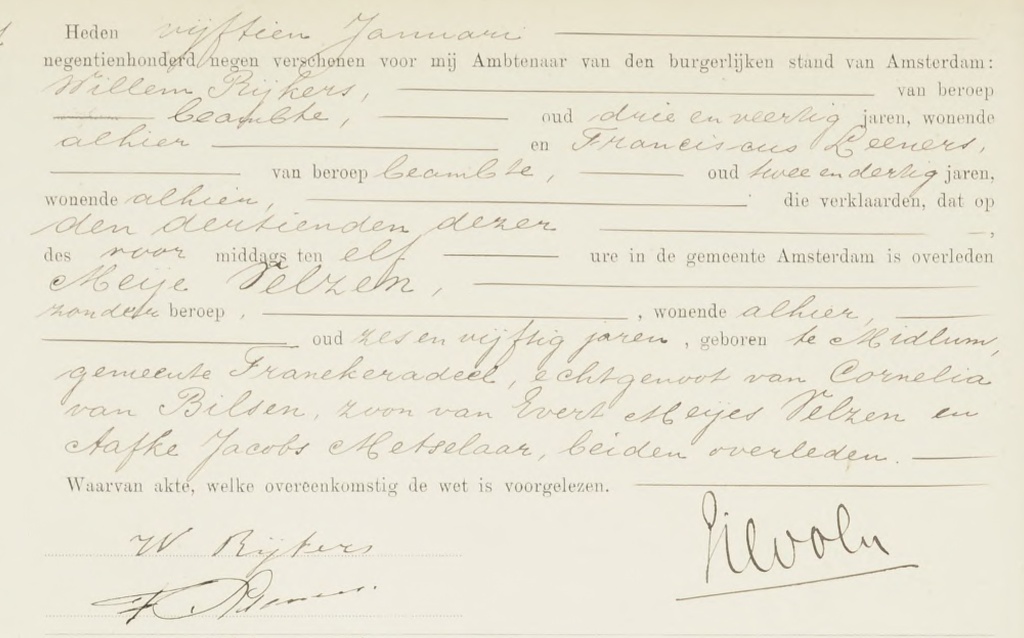 Heden vijftien Januari
negentienhonderd negen verschenen voor mij Ambtenaar van den burgerlijken stand van Amsterdam:
Willem Rijkers, van beroep
beambte, oud drie en veertig jaren, wonende
alhier en Franciscus Leeners,
van beroep beambte, oud twee en dertig jaren,
wonende alhier, die verklaarden, dat op
den dertienden dezer,
des voor middags ten elf ure in de gemeente Amsterdam is overleden
Meije Velzen,
zonder beroep, wonende alhier,
oud zes en vijftig jaren, geboren te Midlum,
gemeente Franekeradeel, echtgenoot van Cornelia
van Bilsen, zoon van Evert Meijes Velzen en
Aafke Jacobs Metselaar, beiden overleden.
Waarvan akte, welke overeenkomstig de wet is voorgelezen.
W Rijkers